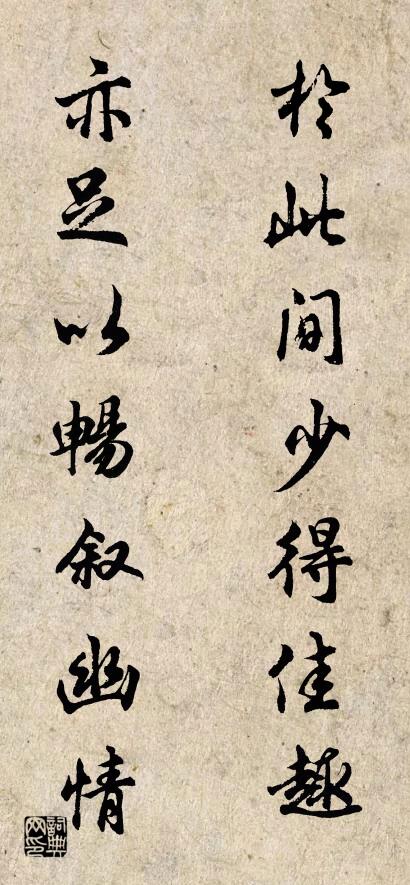 於此间少得佳趣
亦足以暢叙幽情
詞典网印